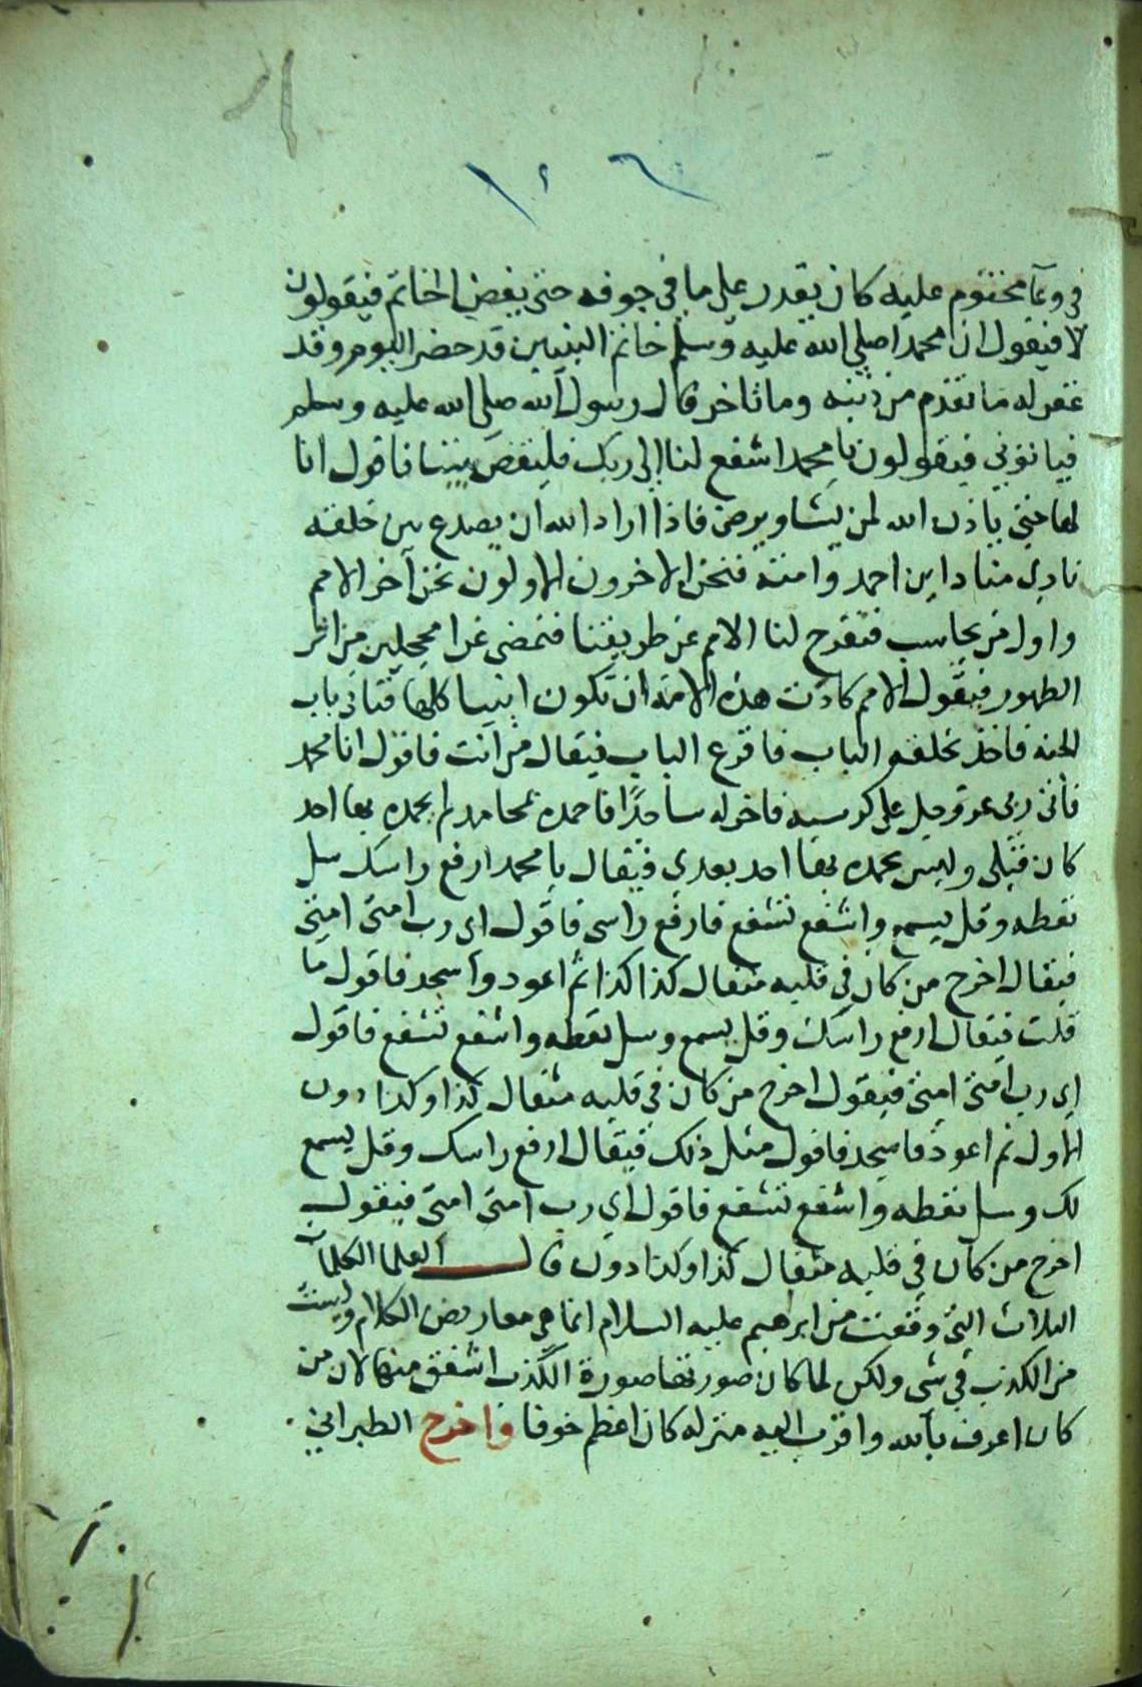 في وعآ مختوم عليه كان يقدر على ما في جوفه حتى يفض الخاتم فيقولون
لا فيقول ان محمدا صلى الله عليه وسلم خاتم النبيين قد حضر اليوم وقد
غفر له ما تقدم من ذنبه وما تاخر قال رسول الله صلى الله عليه وسلم
فياتوني فيقولون يا محمد اشفع لنا الى ربك فليقض بيننا فاقول انا
لها حتى ياذن الله لمن يشا ويرضى فاذا اراد الله ان يصدع بين خلقه
نادى مناد اين احمد وامته فنحن الاخرون الاولون نحن آخر الامم
واول من يحاسب فتفرج لنا الامم عن طريقنا فنمضى غرا محجلين من اثر
الطهور فيقول الامم كادت هذه الامة ان تكون انبيا كلها فناتي باب
الجنه فاخذ بحلقه الباب فاقرع الباب فيقال من انت فاقول انا محمد
فاتى ربى عز وجل على كرسيه فاخر له ساجدًا فاحمده بمحامد لم يحمده بها احد
كان قبلى وليس يحمده بها احد بعدي فيقال يا محمد ارفع راسك سل
تعطه وقل يسمع واشفع تشفع فارفع راسى فاقول اى رب امتى امتى
فيقال اخرج من كان في قلبه مثقال كذا كذا ثم اعود واسجد فاقول ما
قلت فيقال ارفع راسك وقل يسمع وسل تعطه واشفع تشفع فاقول
اي رب امتى امتى فيقول اخرج من كان في قلبه مثقال كذا وكذا دون
الاول ثم اعود فاسجد فاقول مثل ذلك فيقال ارفع راسك وقل يسمع
لك وسل تعطه واشفع تشفع فاقول اي رب امتى امتى فيقول
اخرج من كان في قلبه مثقال كذا وكذا دون قال العلما الكلمات
الثلاث التي وقعت من ابراهيم عليه السلام انما هي معاريض الكلام وليست
من الكذب في شي ولكن لما كان صورتها صورة الكذب اشفق منها لان من
كان اعرف بالله واقرب اليه منزله كان اعظم خوفا واخرج الطبراني